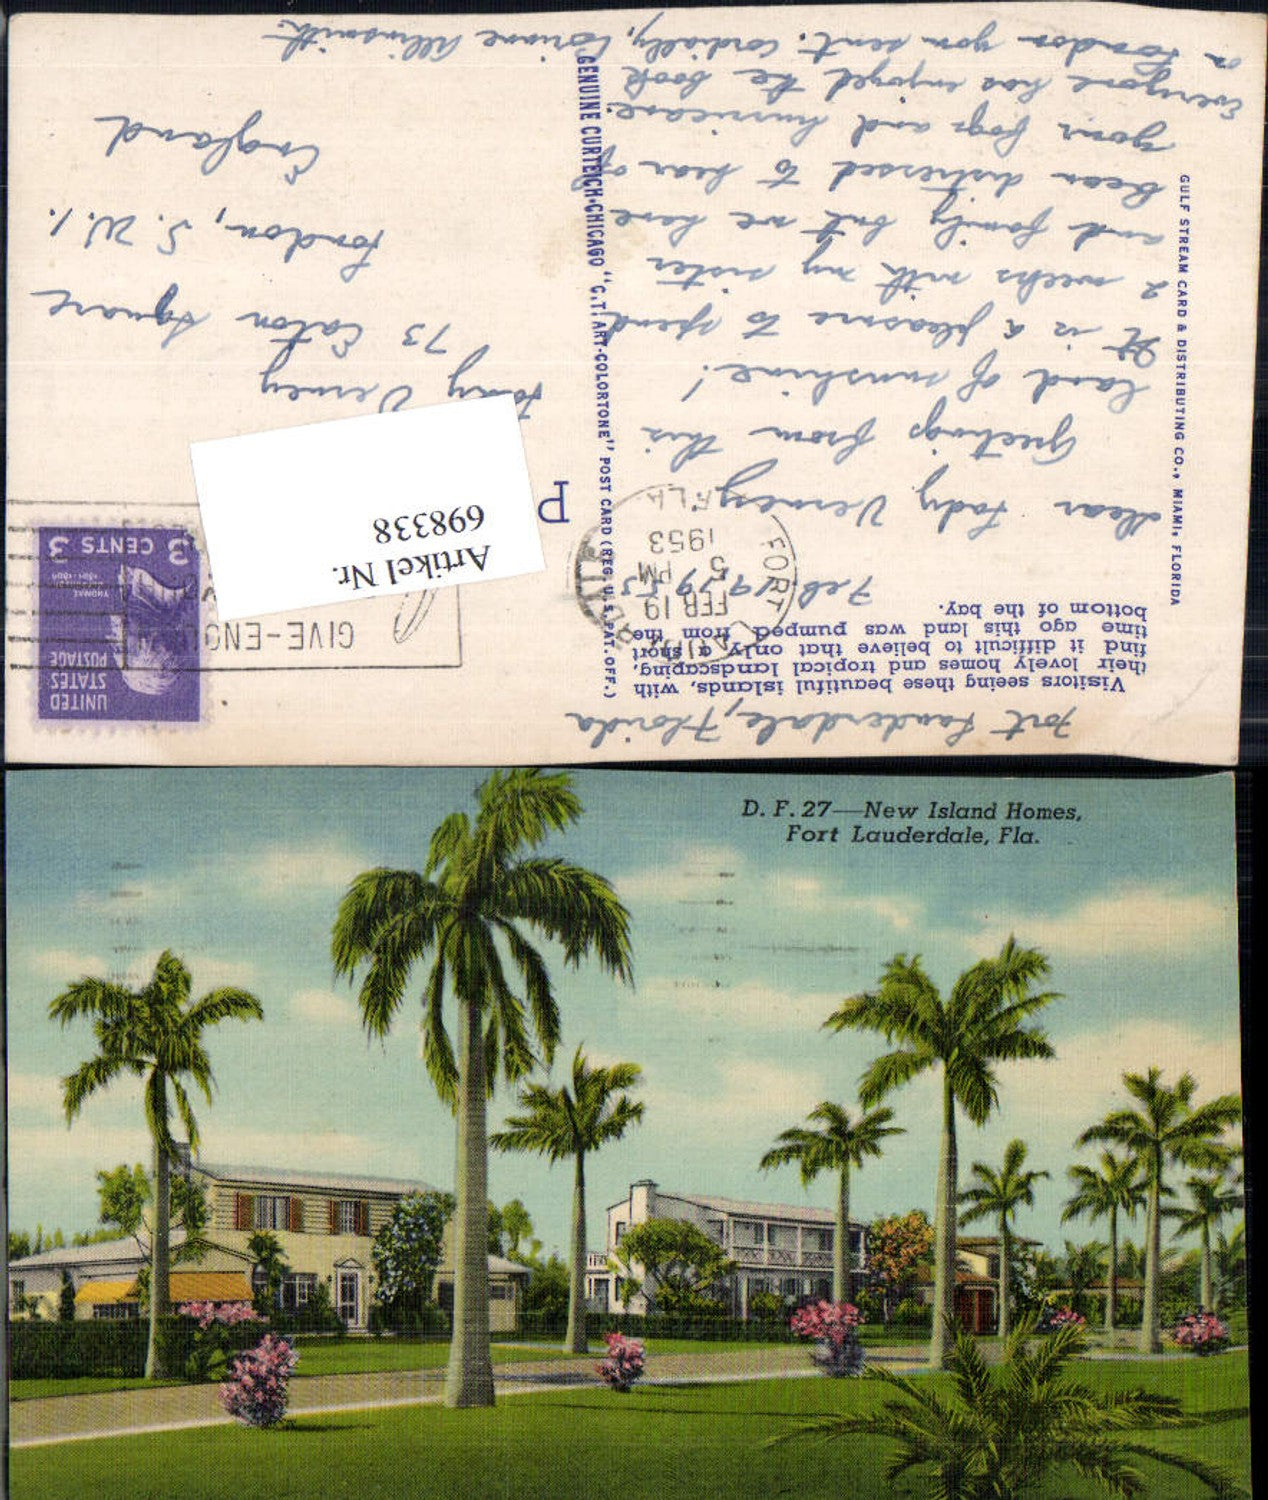 Fort Lauderdale, Florida
Visitors seeing these beautiful islands, with
their lovely homes and tropical landscaping,
find it difficult to believe that only a short
time ago this land was pumped from the
bottom of the bay.
Feb. 19, 1953
Dear Lady Verney
Greetings from this
land of sunshine!
It is a pleasure to spend
2 weeks with my sister
and family but we have
been distressed to hear of
your fogs and hurricane.
Everyone has enjoyed the book
on London you sent. Cordially,
Allinsmith.
GULF STREAM CARD & DISTRIBUTING CO., MIAMI, FLORIDA
GENUINE CURTEICH-CHICAGO "C.T. ART-COLORTONE" POST CARD (REG. U.S. PAT. OFF.)
P
FORT LAUDERDALE
FEB 19
5 PM
1953
FLA
GIVE-ENC
UNITED
STATES
POSTAGE
THOMAS
3 CENTS 3
Artikel Nr.
698338
Lady Verney
73 Eaton Square
London, S.W.1.
England
D. F. 27—New Island Homes,
Fort Lauderdale, Fla.